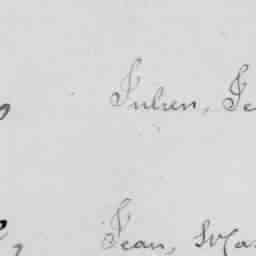 Julien, Je
Jean, Ma